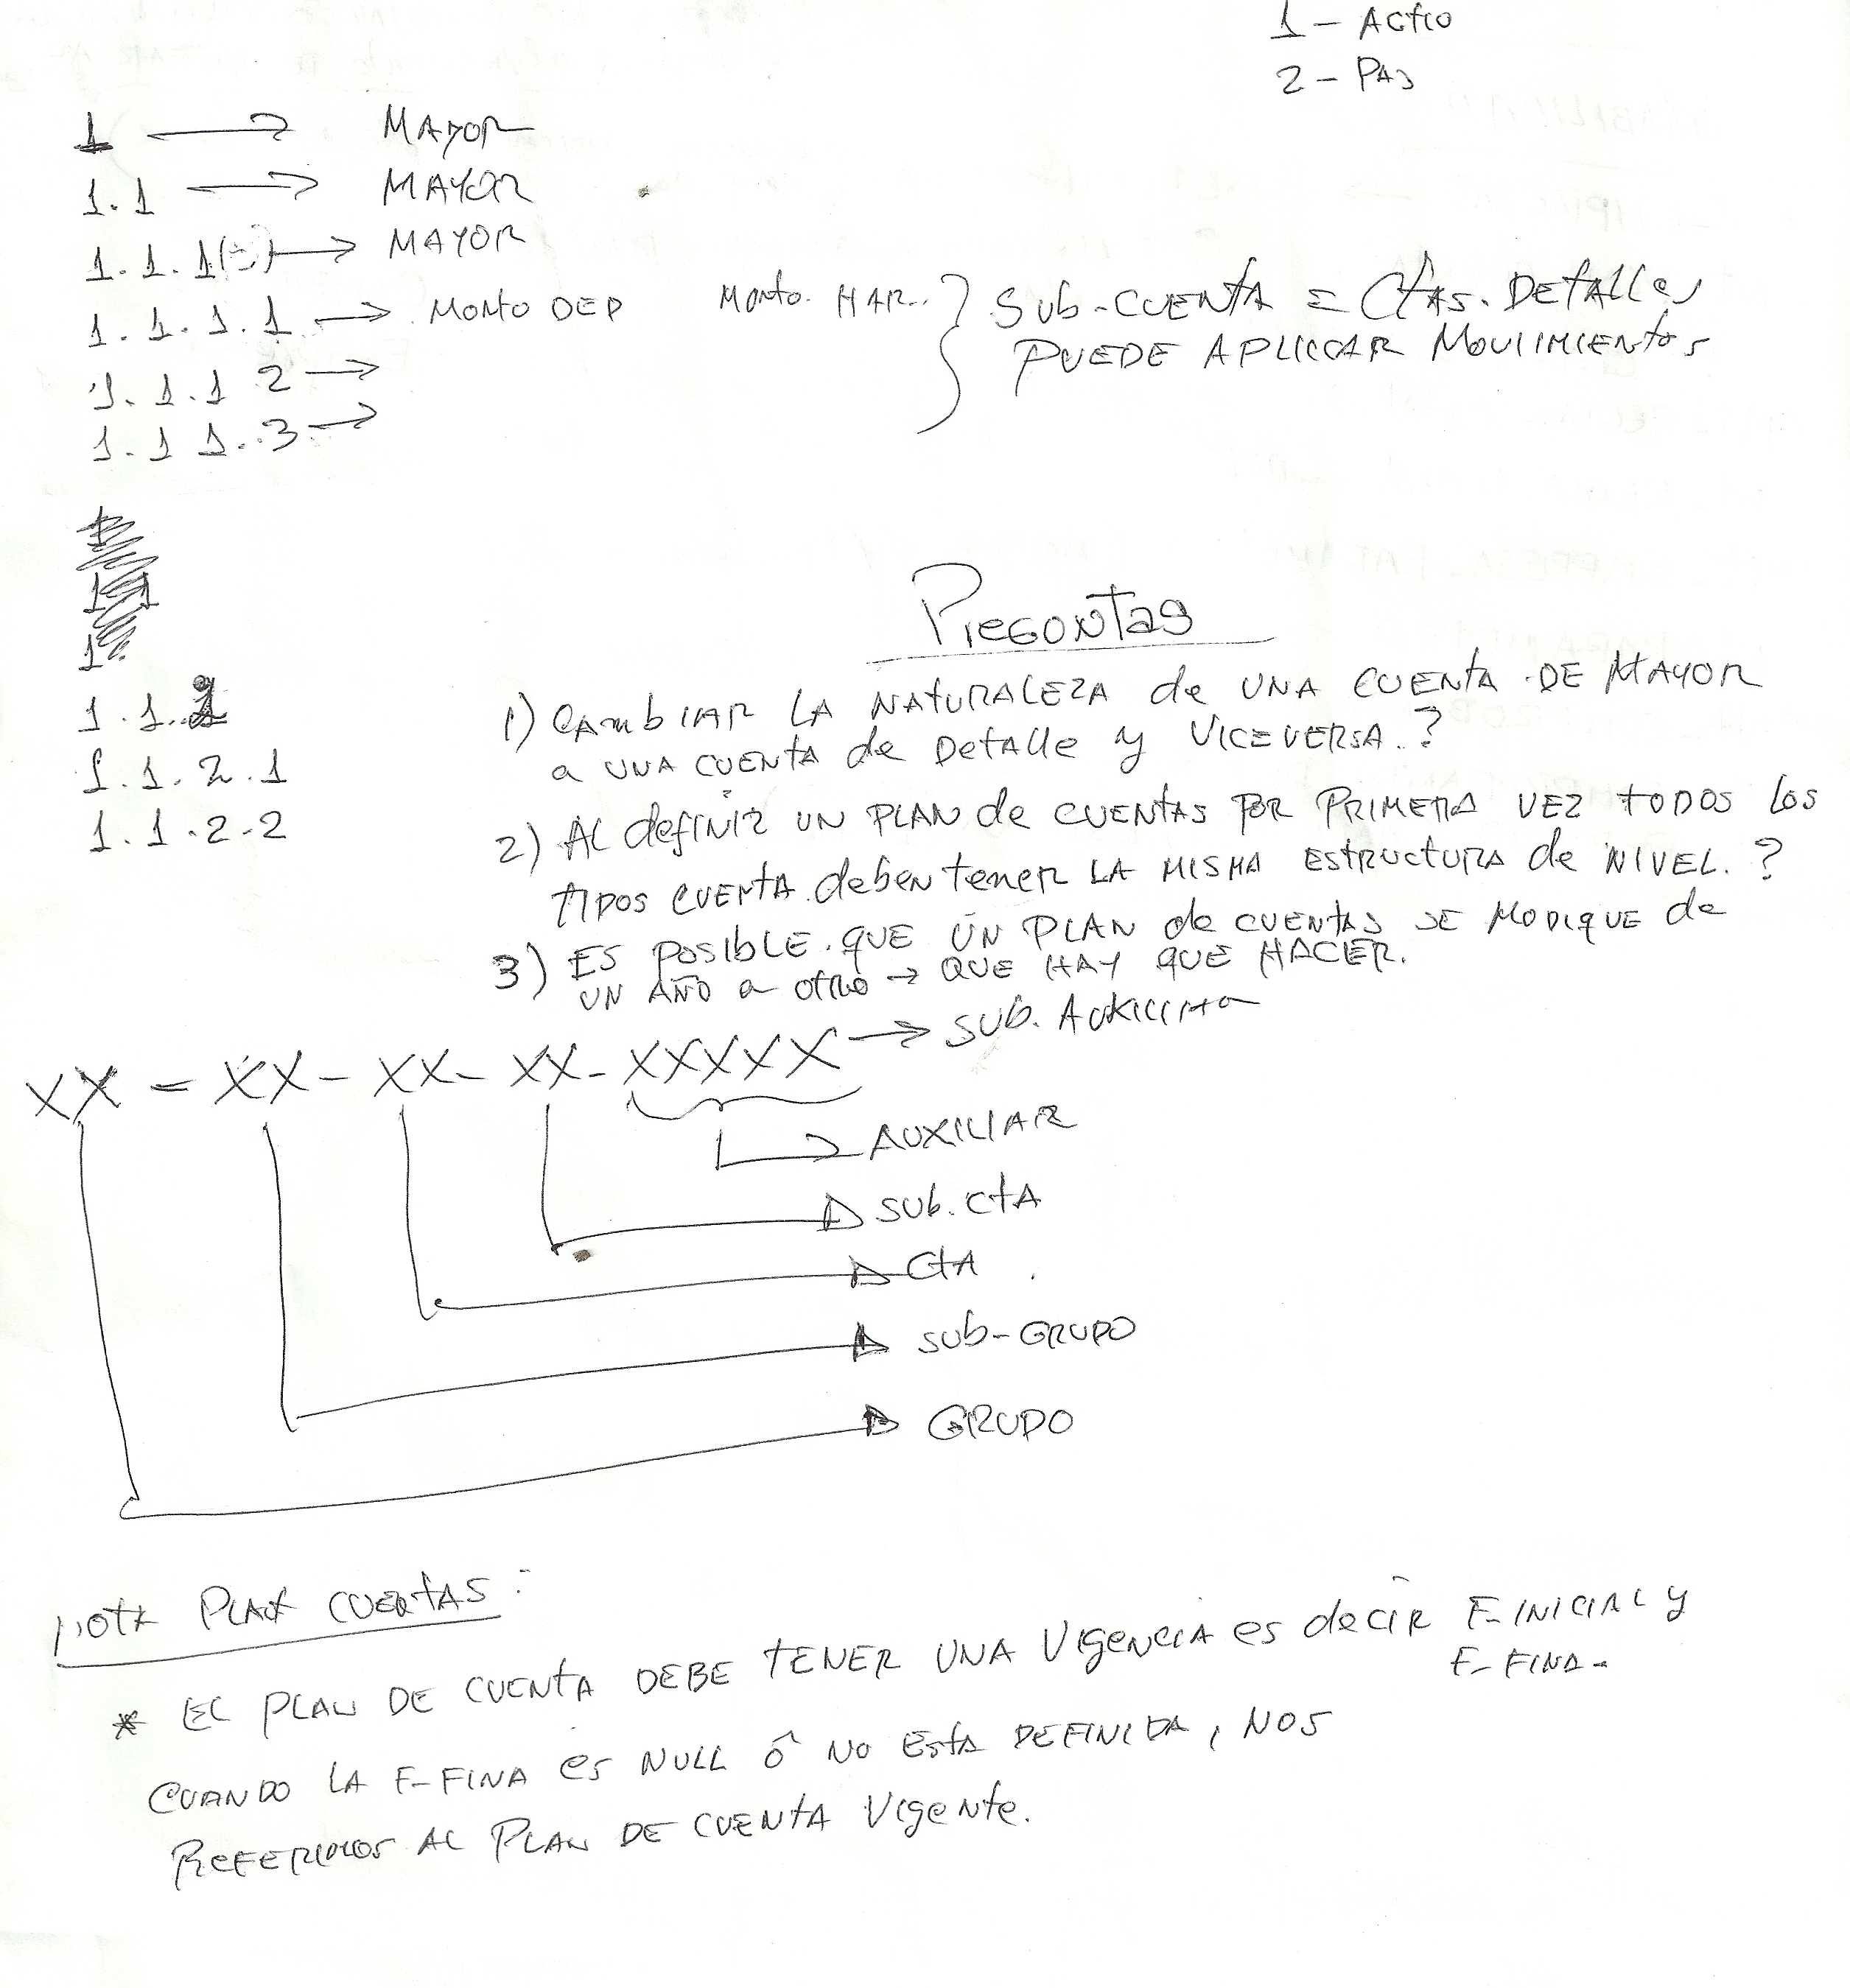 1 - Actio
2 - PAs
1 → MAYOR
1.1 → MAYOR
1.1.1 → MAYOR
1.1.1.1 → MONTO DEP MONTO. HAR..
1.1.1 2 →
1.1 1..3 →
Sub-CUENTA = CtAS. DEtALLes
PUEDE APLICCAR MOVIIMIENtos
1
1.1
1
1.1.2
1.1.2.1
1.1.2.2
PREGONTAS
1) CAMbIAR LA NATURALEZA de UNA CUENTA DE MAYOR
a UNA CUENTA de DetAlle y VICEVERSA.?
2) AL definiR UN PLAN de CUENTAS POR PRIMERA VEZ TODOS LOS
TIPOS CUENTA deben tener LA MISMA ESTRUCTURA de NIVEL.?
3) ES POSIBLE QUE UN PLAN de CUENTAS SE MODIQUE de
UN AÑO a otRo → QUE HAY QUE HACER.
XX = XX - XX - XX - XXXXX → SUb.
AUXILIAR
SUb. CtA
CtA
SUb-GRUPO
GRUPO
NOTA PLAN CUENTAS:
* EL PLAN DE CUENTA DEBE TENER UNA VIGENCIA es decir F-INICIAL y
F-FINA.
CUANDO LA F-FINA es NULL ó NO EstA DEFINIDA, NOS
REFERIMOS AL PLAN DE CUENTA VIgeNte.